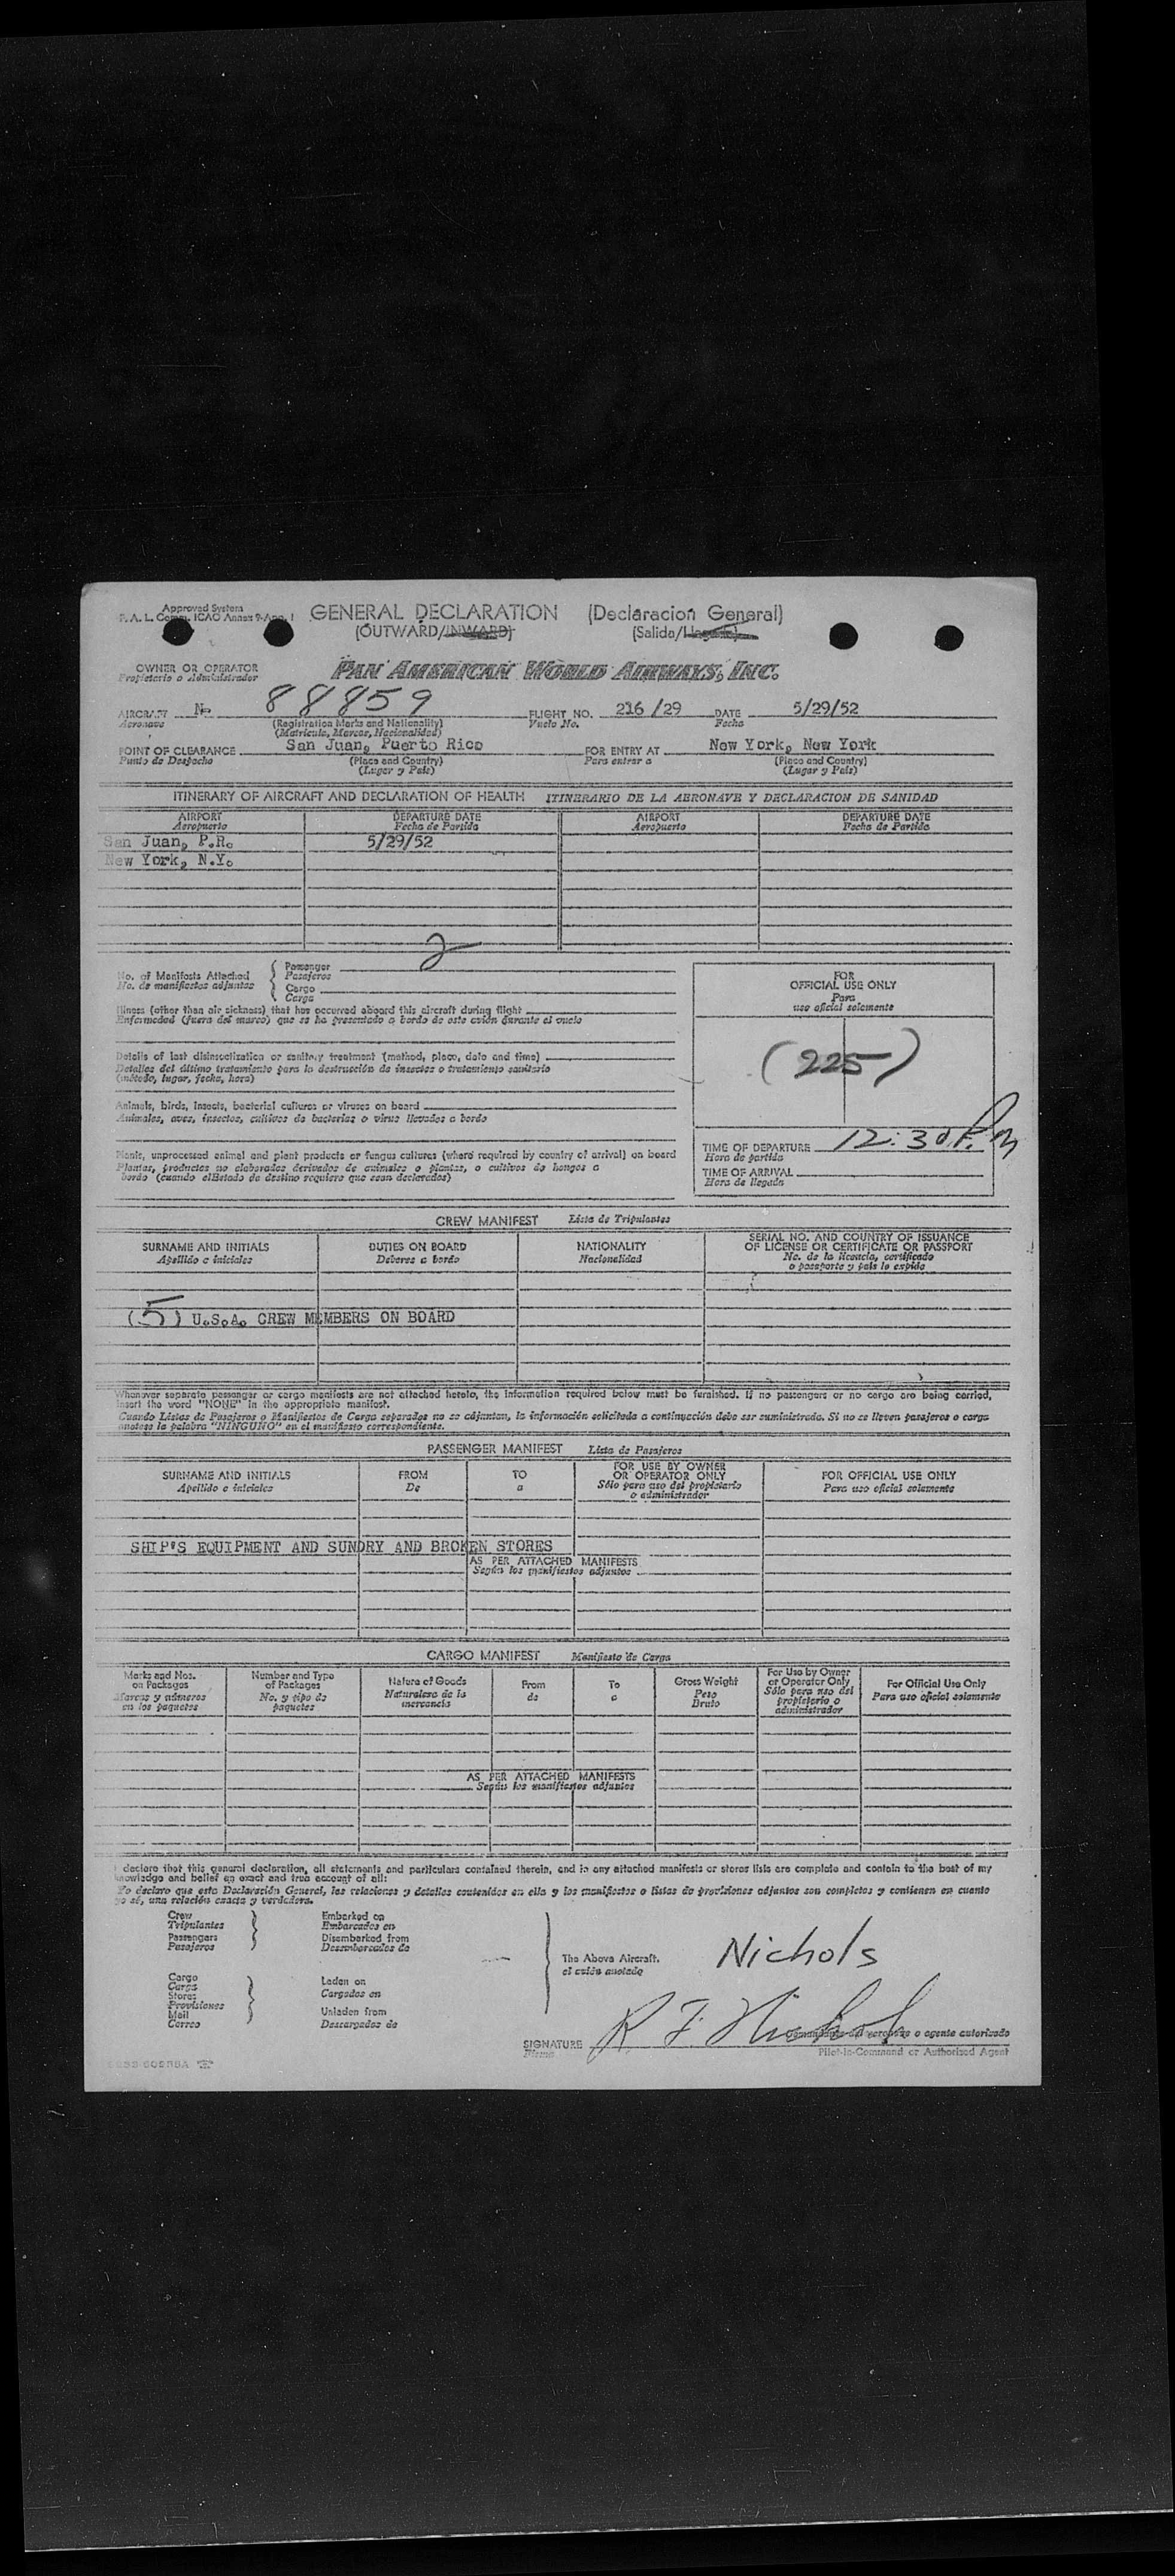 Approved System
GENERAL DECLARATION (Declaracion General)
(OUTWARD/INWARD) (Salida/Llegada)
OWNER OR OPERATOR PAN AMERICAN WORLD AIRWAYS, INC.
Propietario o Administrador
AIRCRAFT N- 88859 FLIGHT NO. 216/29 DATE 5/29/52
Aeronave (Registration Marks and Nationality) Vuelo No. Fecha
(Matricula, Marcas, Nacionalidad)
POINT OF CLEARANCE San Juan, Puerto Rico FOR ENTRY AT New York, New York
Punto de Despacho (Place and Country) Para entrar a (Place and Country)
(Lugar y País) (Lugar y País)
ITINERARY OF AIRCRAFT AND DECLARATION OF HEALTH ITINERARIO DE LA AERONAVE Y DECLARACION DE SANIDAD
AIRPORT DEPARTURE DATE AIRPORT DEPARTURE DATE
Aeropuerto Fecha de Partida Aeropuerto Fecha de Partida
San Juan, P.R. 5/29/52
New York, N.Y.
No. of Manifests Attached Passenger 2
No. de manifiestos adjuntos Pasajeros
Cargo
Carga
FOR
OFFICIAL USE ONLY
Para
uso oficial solamente
(225)
Illness (other than air sickness) that has occurred aboard this aircraft during flight
Enfermedad (fuera del mareo) que se ha presentado a bordo de este avión durante el vuelo
Details of last disinsectization or sanitary treatment (method, place, date and time)
Detalles del último tratamiento para la destrucción de insectos o tratamiento sanitario
(método, lugar, fecha, hora)
Animals, birds, insects, bacterial cultures or viruses on board
Animales, aves, insectos, cultivos de bacterias o virus llevados a bordo
Plants, unprocessed animal and plant products or fungus cultures (where required by country of arrival) on board
Plantas, productos no elaborados derivados de animales o plantas, o cultivos de hongos a
bordo (cuando el Estado de destino requiere que sean declarados)
TIME OF DEPARTURE 12:30 P.M
Hora de partida
TIME OF ARRIVAL
Hora de llegada
CREW MANIFEST Lista de Tripulantes
SURNAME AND INITIALS DUTIES ON BOARD NATIONALITY SERIAL NO. AND COUNTRY OF ISSUANCE
OF LICENSE OR CERTIFICATE OR PASSPORT
Apellido e iniciales Deberes a bordo Nacionalidad No. de la licencia, certificado
o pasaporte y país lo expide
(5) U.S.A. CREW MEMBERS ON BOARD
Whenever separate passenger or cargo manifests are not attached hereto, the information required below must be furnished. If no passengers or no cargo are being carried,
insert the word "NONE" in the appropriate manifest.
Cuando Listas de Pasajeros o Manifiestos de Carga separados no se adjuntan, la información solicitada a continuación debe ser suministrada. Si no se lleven pasajeros o carga
anotese la palabra "NINGUNO" en el manifiesto correspondiente.
PASSENGER MANIFEST Lista de Pasajeros
SURNAME AND INITIALS FROM TO FOR USE BY OWNER
OR OPERATOR ONLY FOR OFFICIAL USE ONLY
Apellido e iniciales De a Sólo para uso del propietario
o administrador Para uso oficial solamente
SHIP'S EQUIPMENT AND SUNDRY AND BROKEN STORES
AS PER ATTACHED MANIFESTS
Según los manifiestos adjuntos
CARGO MANIFEST Manifiesto de Carga
Marks and Nos.
on Packages
Marcas y números
en los paquetes
Number and Type
of Packages
No. y tipo de
paquetes
Nature of Goods
Naturaleza de la
mercancía
From
de
To
a
Gross Weight
Peso
Bruto
For Use by Owner
or Operator Only
Sólo para uso del
propietario o
administrador
For Official Use Only
Para uso oficial solamente
AS PER ATTACHED MANIFESTS
Según los manifiestos adjuntos
I declare that this general declaration, all statements and particulars contained therein, and in any attached manifests or stores lists are complete and contain to the best of my
knowledge and belief an exact and true account of all:
Yo declaro que esta Declaración General, las relaciones y detalles contenidos en ella y los manifiestos o listas de provisiones adjuntos son completos y contienen en cuanto
yo sé, una relación exacta y verdadera.
Crew
Tripulantes
Passengers
Pasajeros
Embarked on
Embarcados en
Disembarked from
Desembarcados de
Cargo
Carga
Stores
Provisiones
Mail
Correo
Laden on
Cargados en
Unladen from
Descargados de
The Above Aircraft.
el avión anotado
Nichols
SIGNATURE R F Nichols
Firma
o agente autorizado
Pilot-in-Command or Authorized Agent